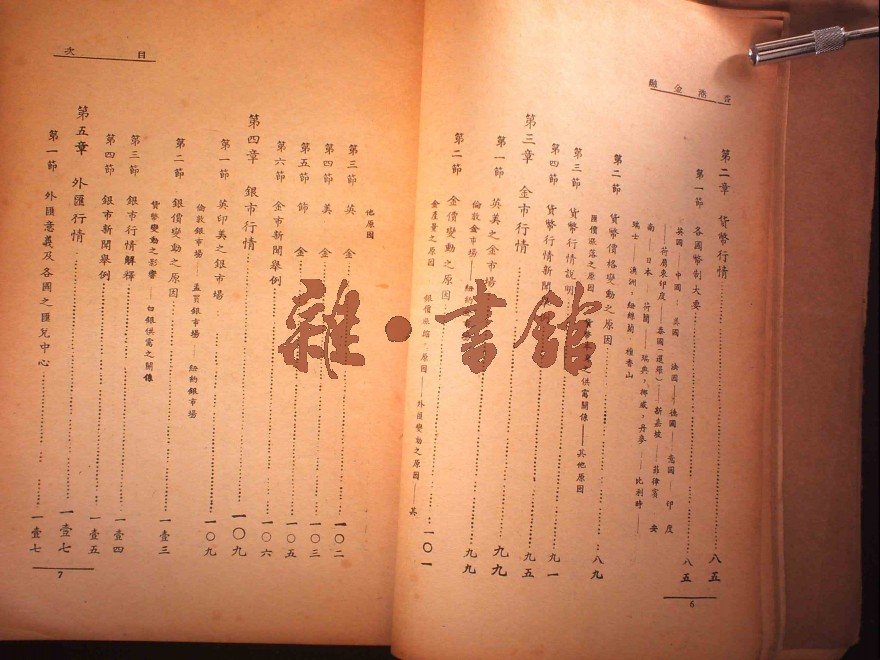 香港金融
第二章 貨幣行情 八五
第一節 各國幣制大要 八五
英國 中國 美國 法國 德國 意國 印度
荷屬東印度 泰國(暹羅) 新嘉坡 菲律賓 安
南 日本 荷蘭 瑞典,挪威,丹麥 比利時
瑞士 澳洲,紐絲蘭 檀香山
第二節 貨幣價格變動之原因 八九
匯價漲落之原因 供需關係 其他原因
第三節 貨幣行情說明 九一
第四節 貨幣行情新聞 九五
第三章 金市行情 九九
第一節 英美之金市場 九九
倫敦金市場 紐約
第二節 金價變動之原因 一〇一
金產量之原因 銀價漲縮 原因 外匯變動之原因 其
6
目次
他原因
第三節 英金 一〇二
第四節 美金 一〇三
第五節 飾金 一〇五
第六節 金市新聞舉例 一〇六
第四章 銀市行情 一〇九
第一節 英印美之銀市場 一〇九
倫敦銀市場 孟買銀市場 紐約銀市場
第二節 銀價變動之原因 一壹三
貨幣變動之影響 白銀供需之關係
第三節 銀市行情解釋 一壹四
第四節 銀市新聞舉例 一壹五
第五章 外匯行情 一壹七
第一節 外匯意義及各國之匯兌中心 一壹七
7
雜·書館